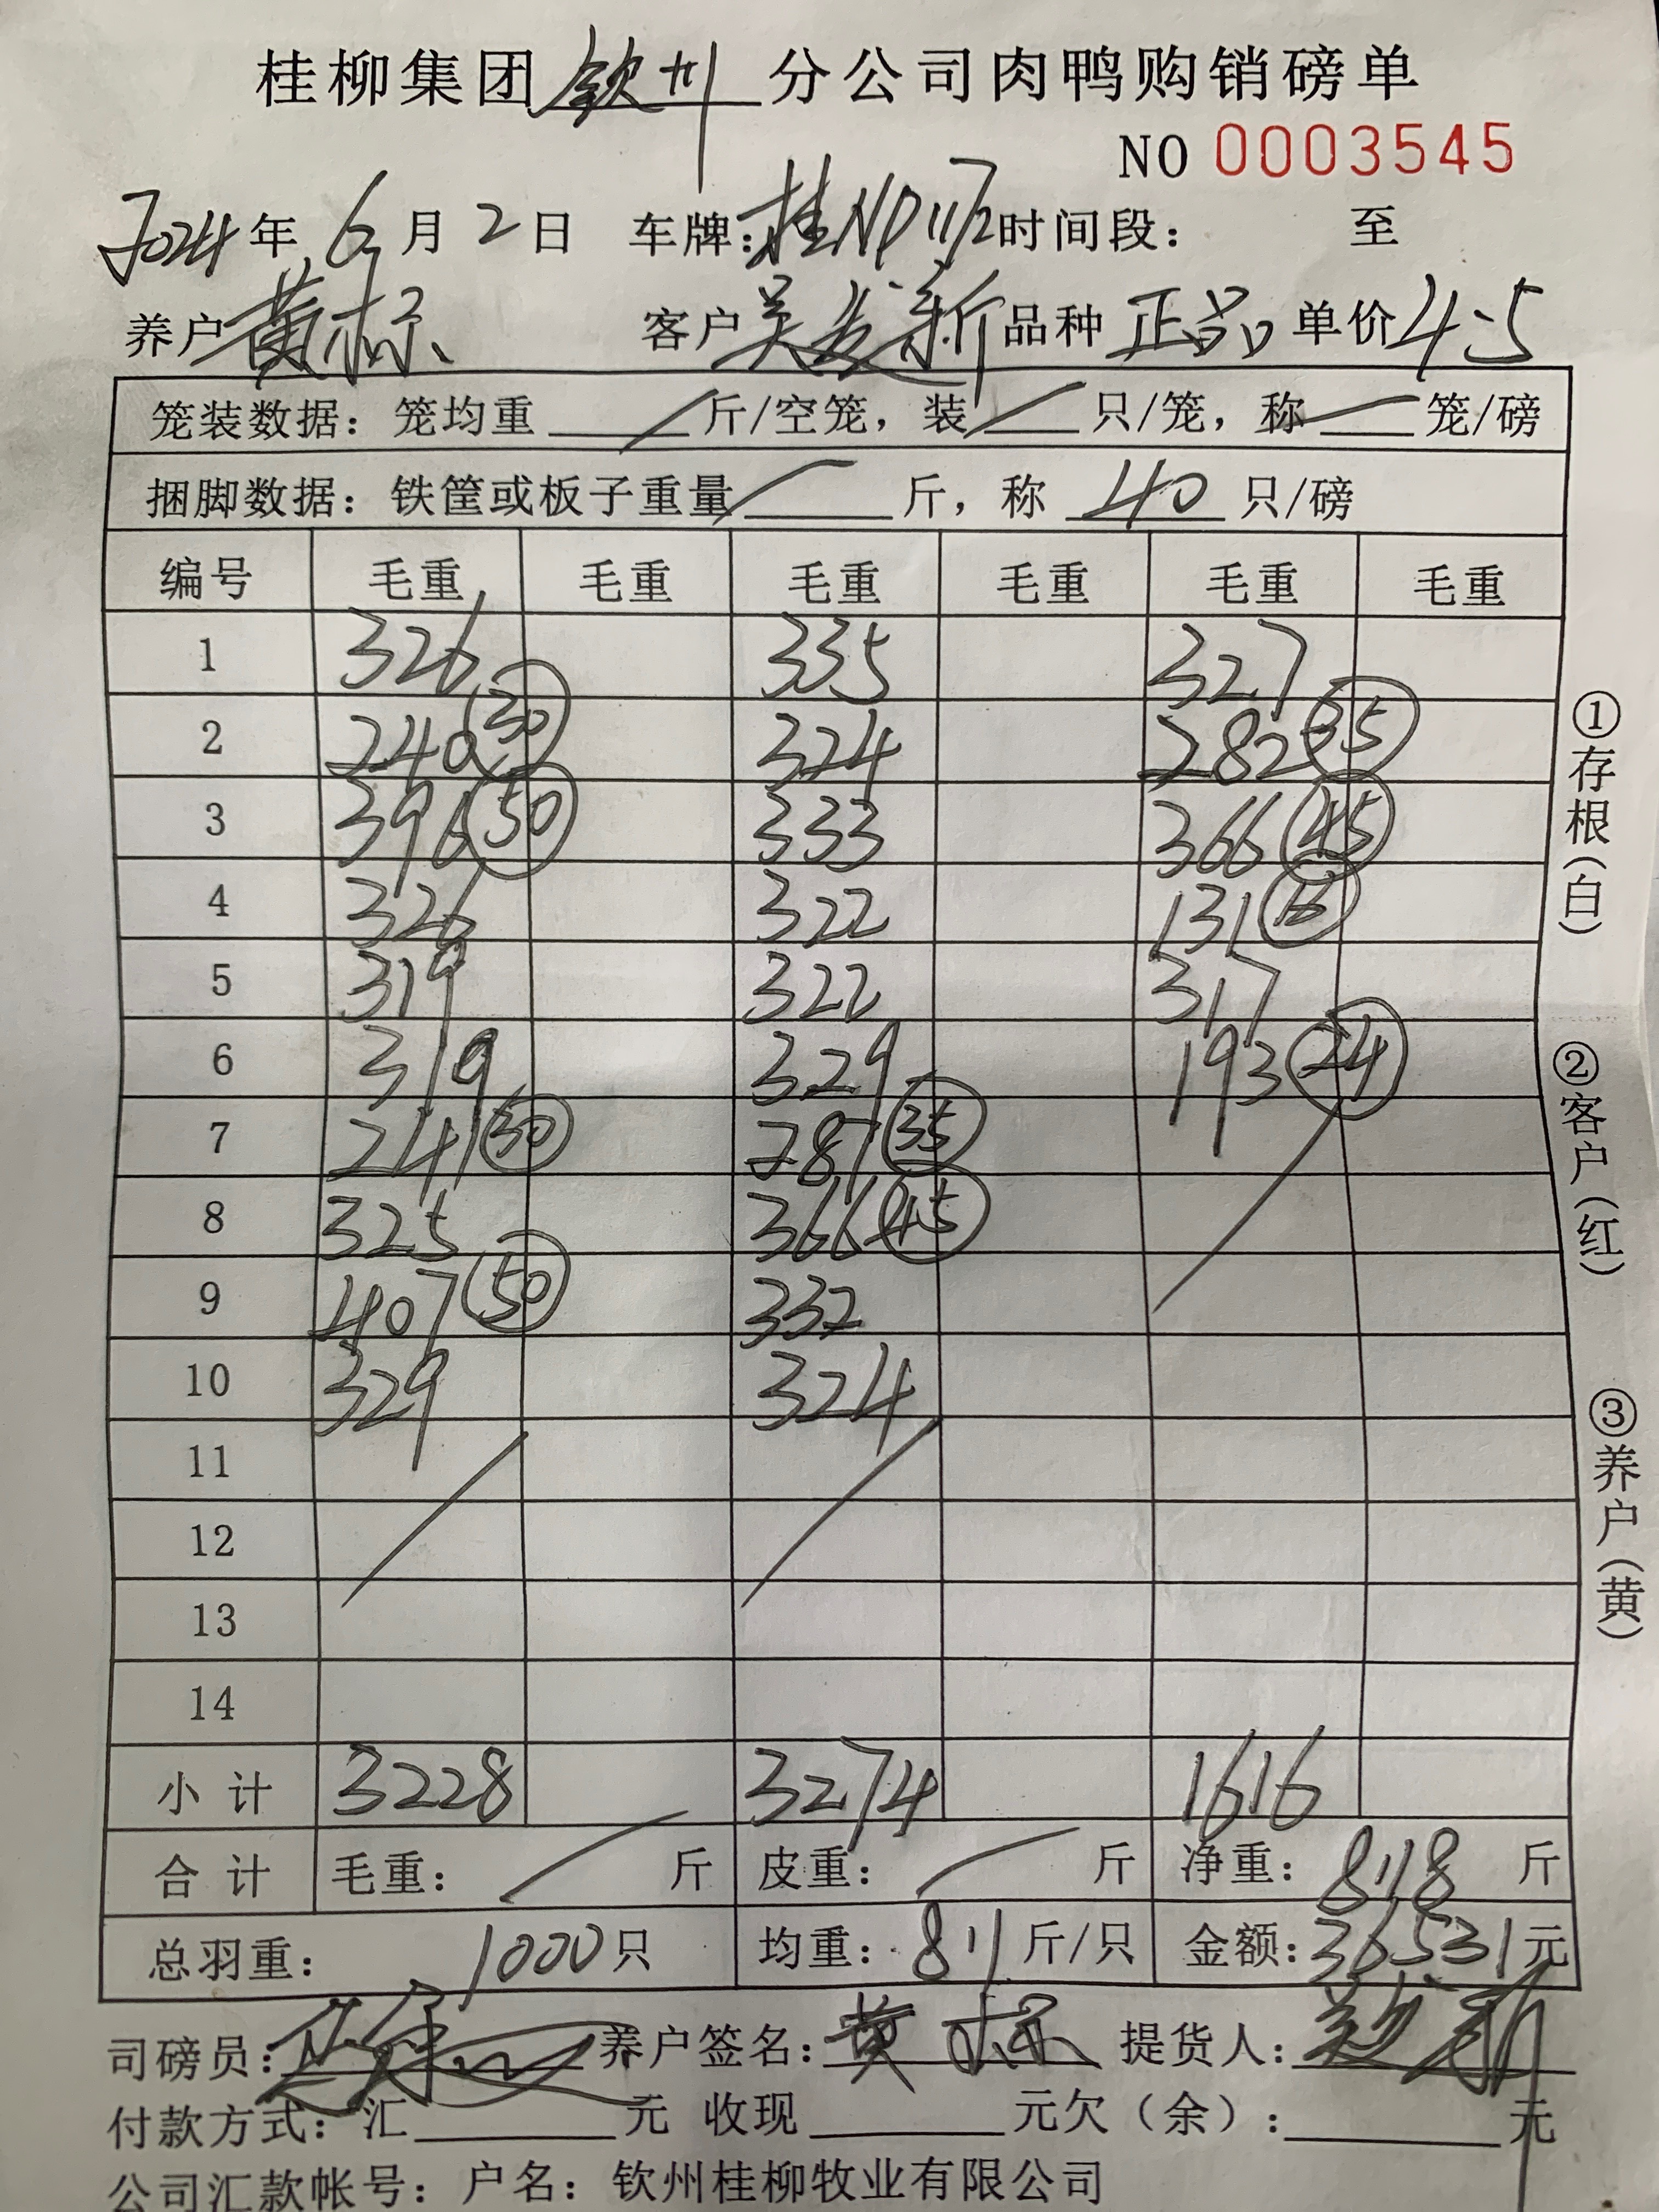 桂柳集团钦州分公司肉鸭购销磅单
NO 0003545
2024年6月2日 车牌：桂ND1112时间段： 至
养户黄标 客户吴发新 品种 正品 单价4.5
笼装数据：笼均重 斤/空笼，装 只/笼，称 笼/磅
捆脚数据：铁筐或板子重量 斤，称 40 只/磅
编号 毛重 毛重 毛重 毛重 毛重 毛重
1 326 335 327
2 240 (30) 324 282 (35)
3 396 (50) 333 366 (45)
4 326 322 131 (16)
5 319 322 317
6 319 329 193 (24)
7 241 (30) 287 (35)
8 325 366 (45)
9 407 (50) 332
10 329 324
11
12
13
14
小计 3228 3274 1616
合计 毛重： 斤 皮重： 斤 净重：8118 斤
总羽重： 1000只 均重：8.11 斤/只 金额：36531元
司磅员： 养户签名：黄标 提货人：吴发新
付款方式：汇 元 收现 元欠（余）： 元
公司汇款帐号：户名：钦州桂柳牧业有限公司
①存根（白）
②客户（红）
③养户（黄）